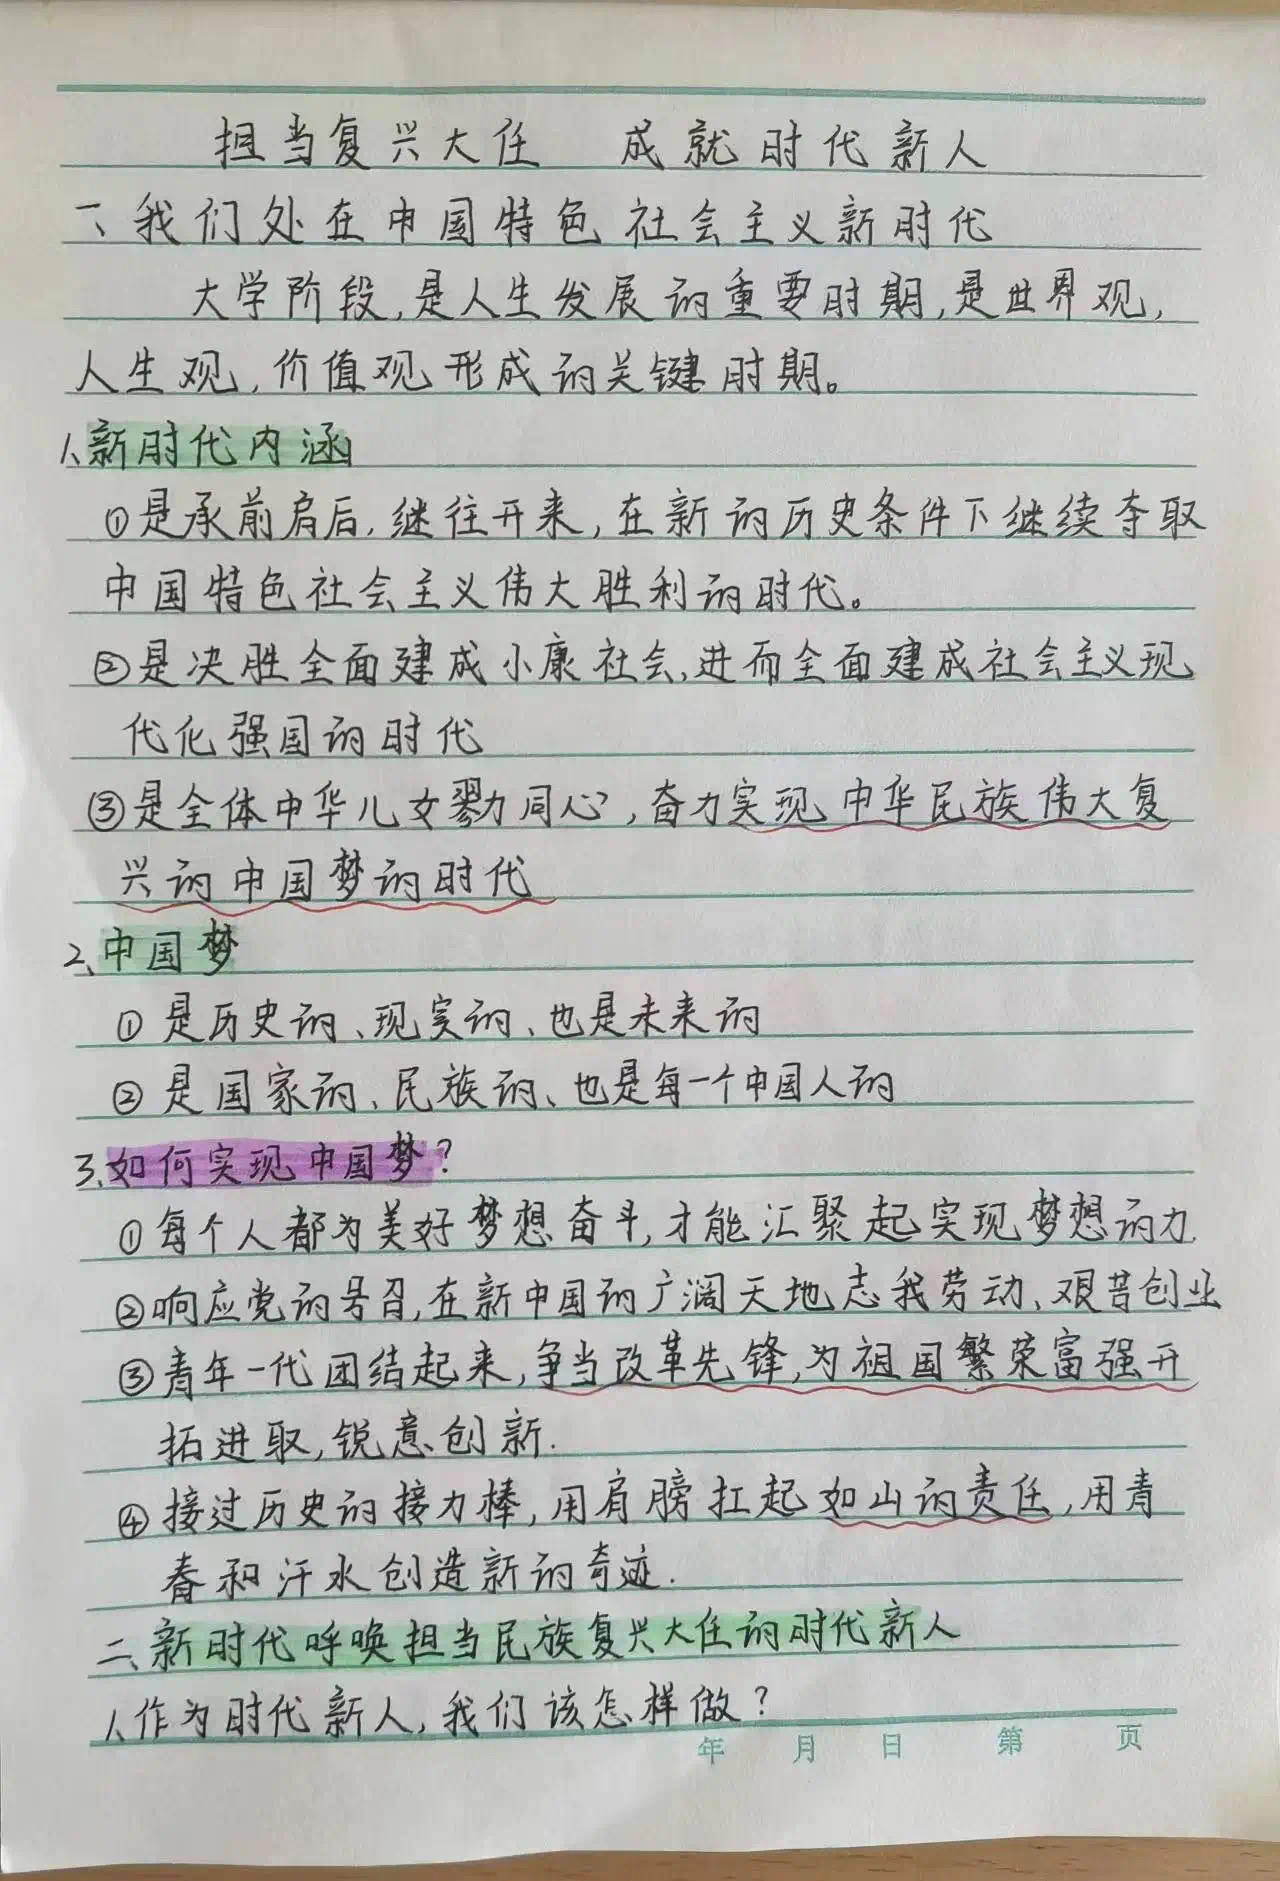 担当复兴大任 成就时代新人
一、我们处在中国特色社会主义新时代
大学阶段,是人生发展的重要时期,是世界观,
人生观,价值观形成的关键时期。
1、新时代内涵
①是承前启后,继往开来,在新的历史条件下继续夺取
中国特色社会主义伟大胜利的时代。
②是决胜全面建成小康社会,进而全面建成社会主义现
代化强国的时代
③是全体中华儿女勠力同心,奋力实现中华民族伟大复
兴的中国梦的时代
2、中国梦
①是历史的、现实的、也是未来的
②是国家的、民族的、也是每一个中国人的
3、如何实现中国梦?
①每个人都为美好梦想奋斗,才能汇聚起实现梦想的力.
②响应党的号召,在新中国的广阔天地忘我劳动、艰苦创业
③青年一代团结起来,争当改革先锋,为祖国繁荣富强开
拓进取,锐意创新.
④接过历史的接力棒,用肩膀扛起如山的责任,用青
春和汗水创造新的奇迹.
二、新时代呼唤担当民族复兴大任的时代新人
1、作为时代新人,我们该怎样做?
年 月 日 第 页